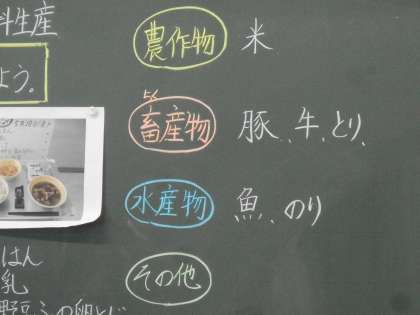 料生産
よう。
農作物 米
畜産物 豚、牛、とり、
水産物 魚、のり
その他
はん
乳